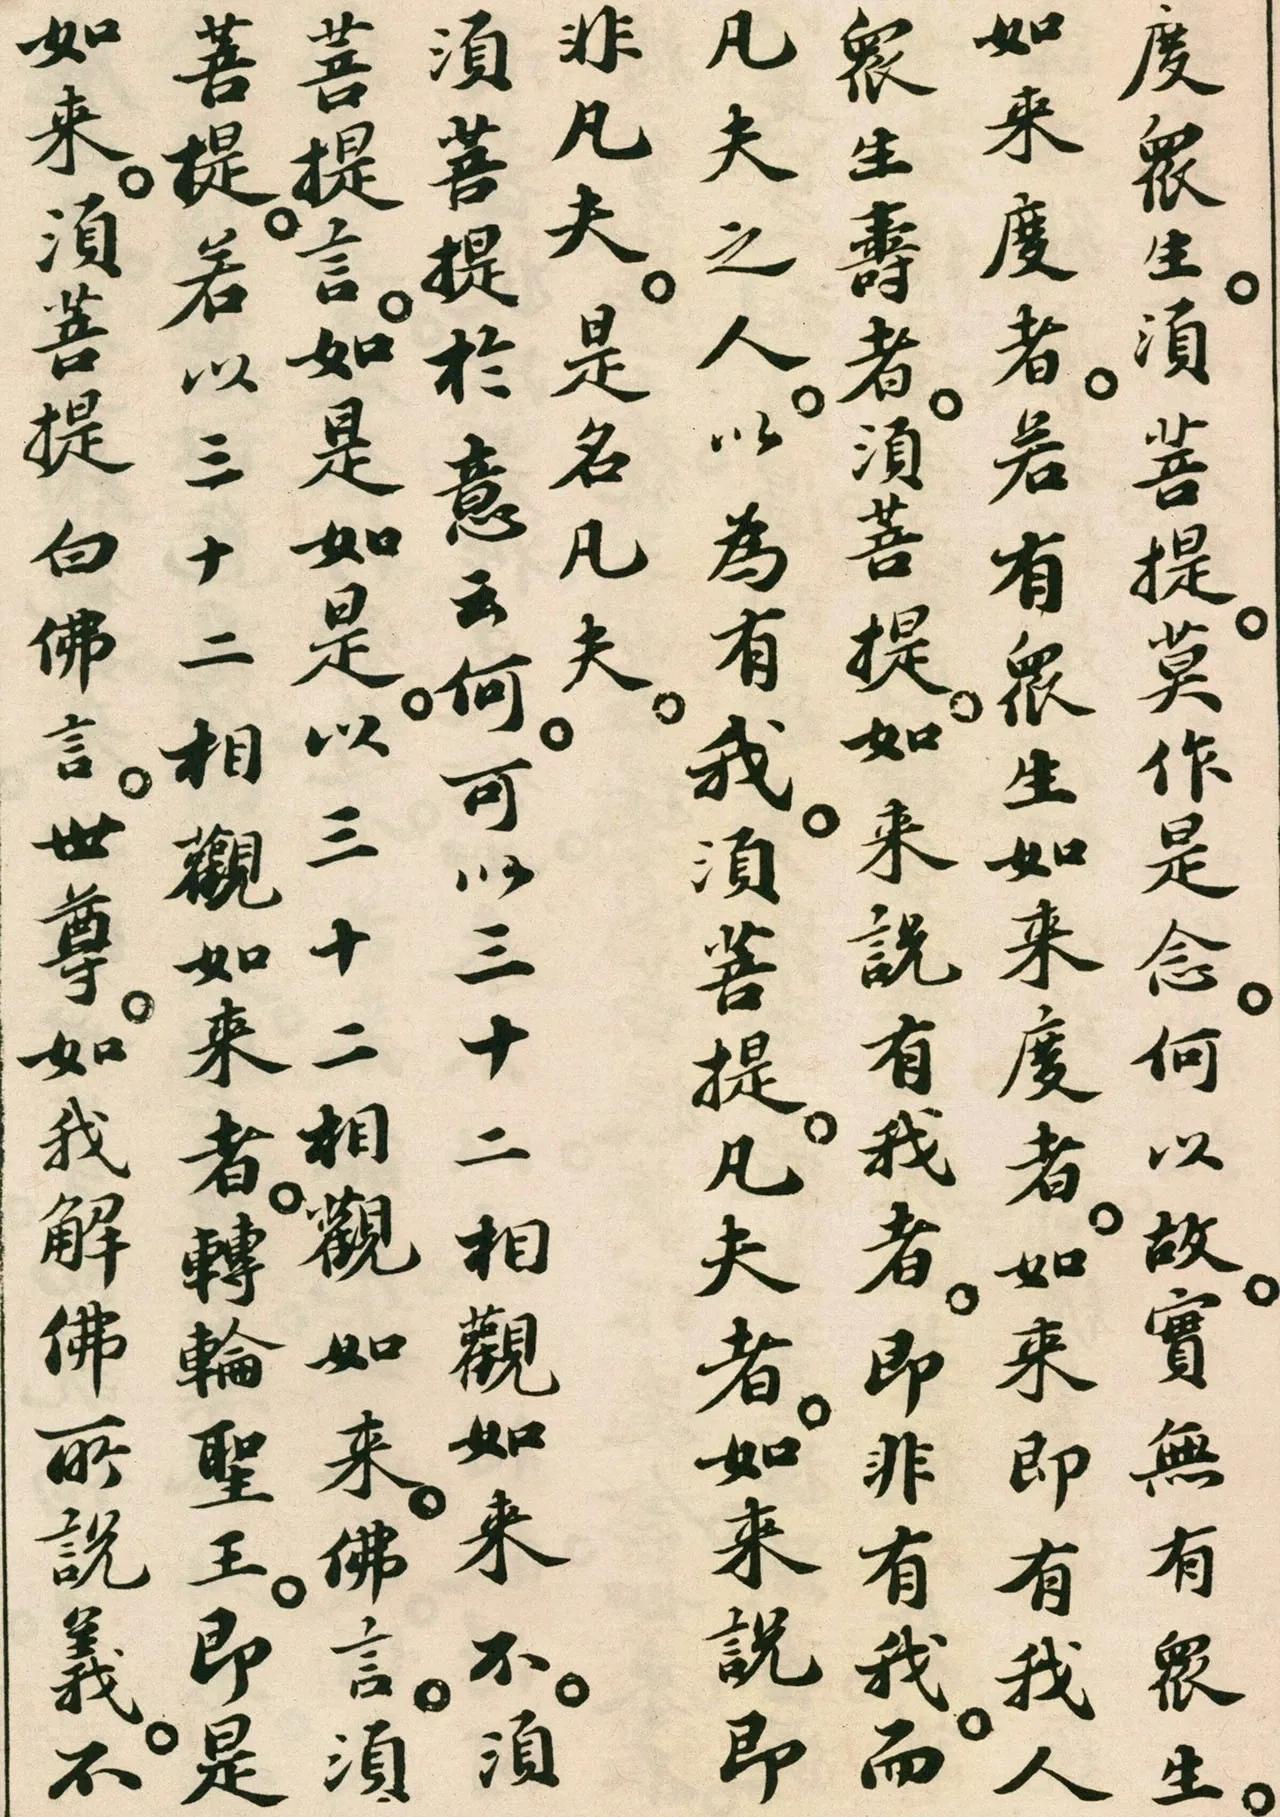 度眾生。須菩提。莫作是念。何以故。實無有眾生。
如来度者。若有眾生如来度者。如来即有我人
眾生壽者。須菩提。如来説有我者。即非有我。而
凡夫之人。以為有我。須菩提。凡夫者。如来説即
非凡夫。是名凡夫。
須菩提於意云何。可以三十二相觀如来不。須
菩提言。如是如是。以三十二相觀如来。佛言。須
菩提。若以三十二相觀如来者。轉輪聖王。即是
如来。須菩提白佛言。世尊。如我解佛所説義。不